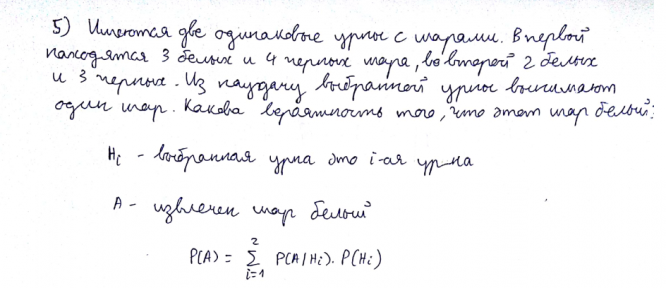 5) Имеются две одинаковые урны с шарами. В первой
находятся 3 белых и 4 черных шара, во второй 2 белых
и 3 черных. Из наудачу выбранной урны вынимают
один шар. Какова вероятность того, что этот шар белый?
Hi - выбранная урна это i-ая урна
A - извлечен шар белый
P(A) = ∑ᵢ₌₁² P(A/Hi) · P(Hi)